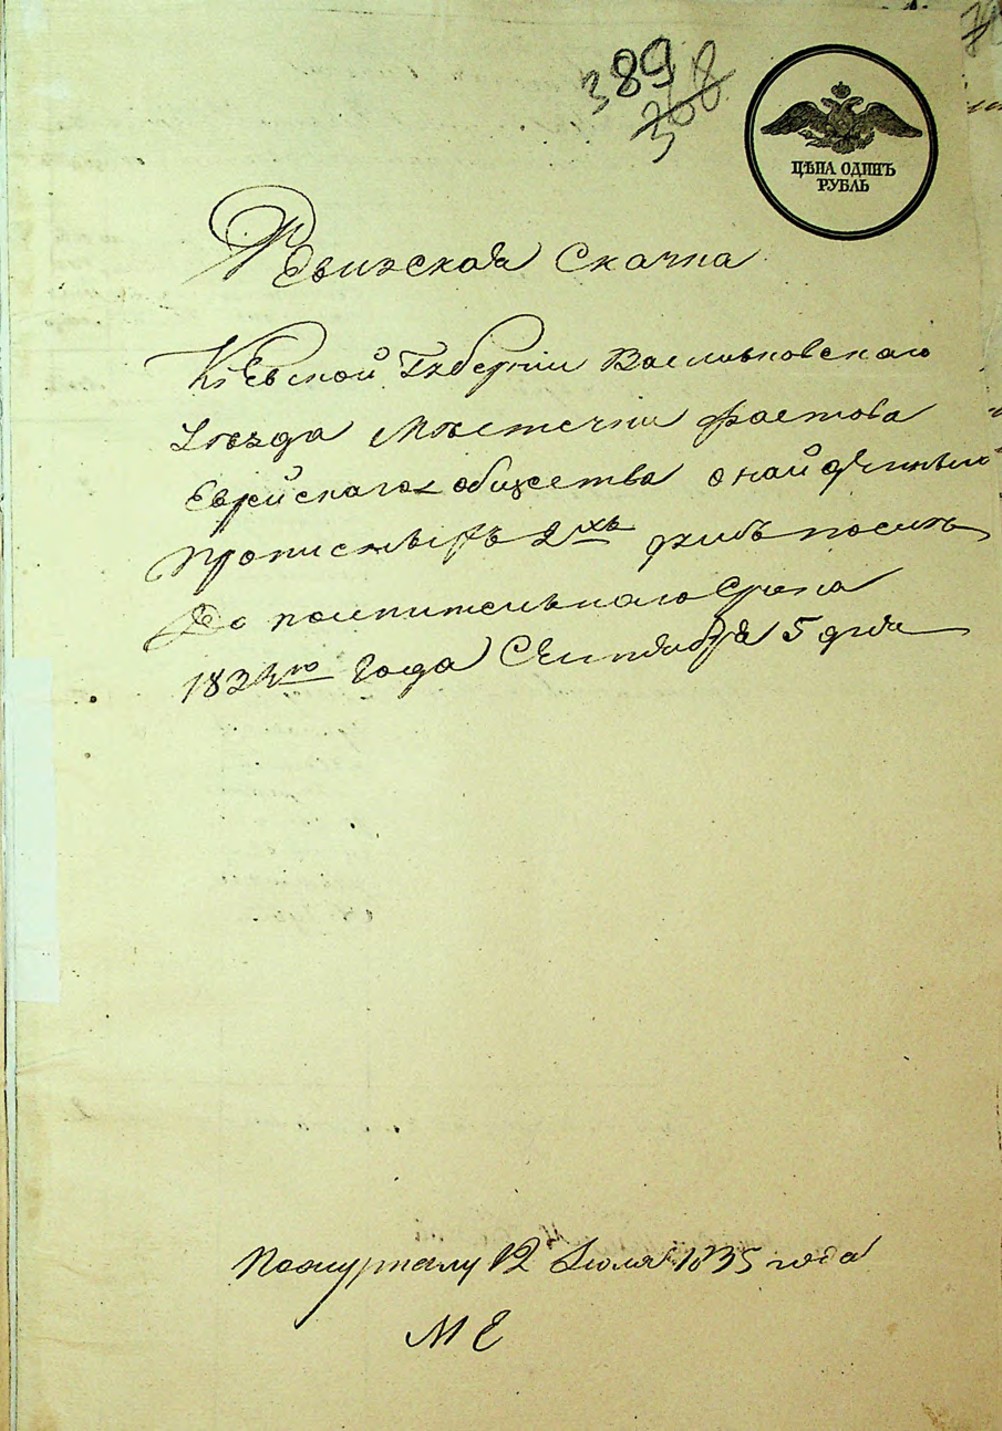 389
368
ЦѢНА ОДИНЪ
РУБЛЬ
Ревизская Скаска
Кіевской Губерніи Васильковскаго
Уѣзда Мѣстечки Фастова
Еврейскаго общества о найденыхъ
прописныхъ 2хъ душъ послѣ
До полнительнаго Срока
1834го Года Сентября 5 дня
По журналу 12 Іюля 1835 года